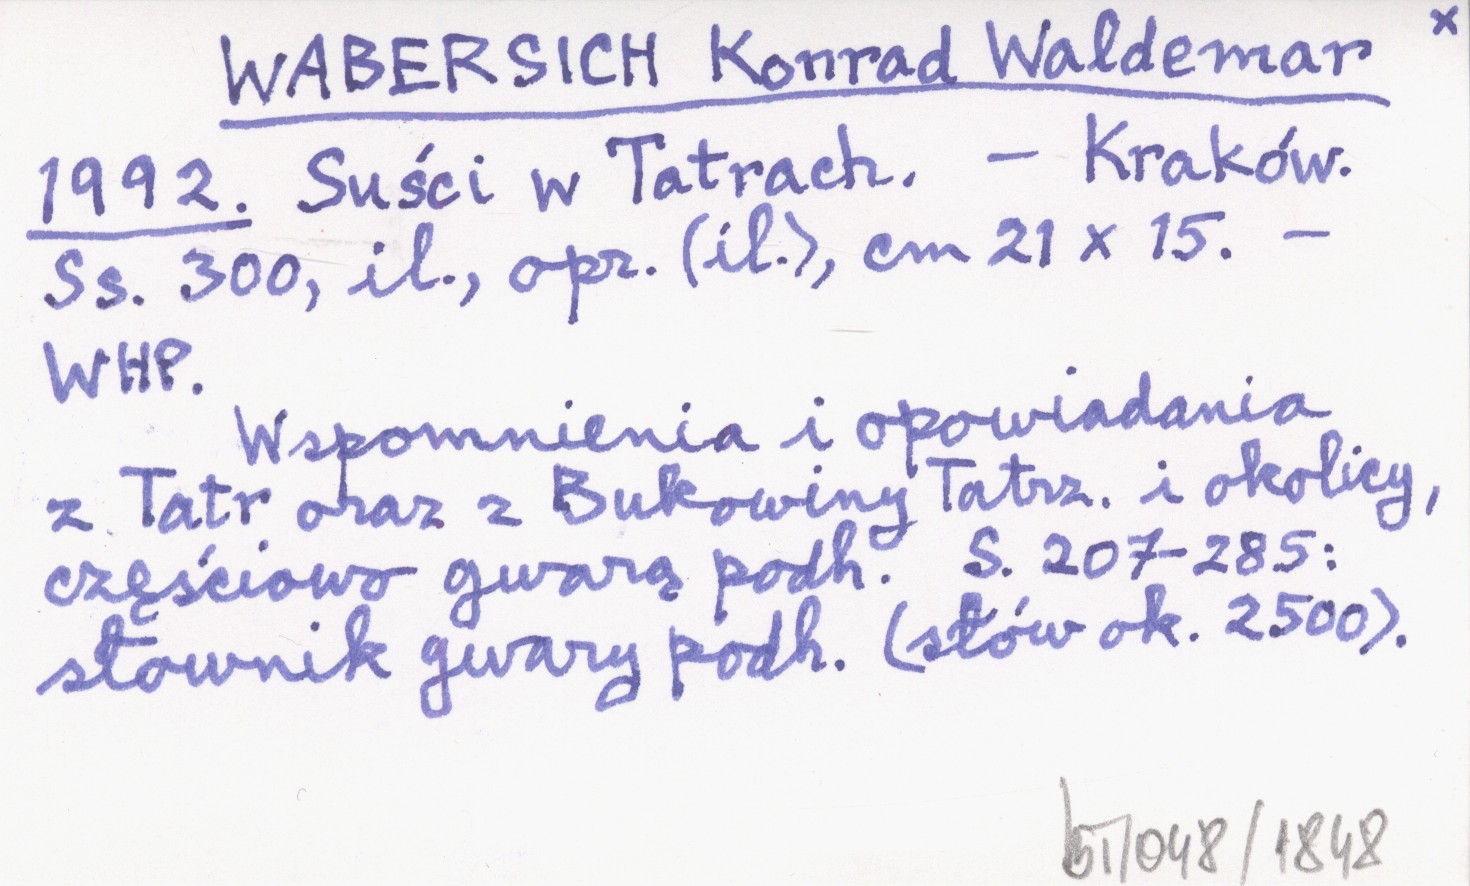 WABERSICH Konrad Waldemar x
1992. Suści w Tatrach. – Kraków.
Ss. 300, il., opr. (il.), cm 21 x 15. –
WHP.
Wspomnienia i opowiadania
z Tatr oraz z Bukowiny Tatrz. i okolicy,
częściowo gwarą podh. S. 207-285:
słownik gwary podh. (słów ok. 2500).
/048/1848